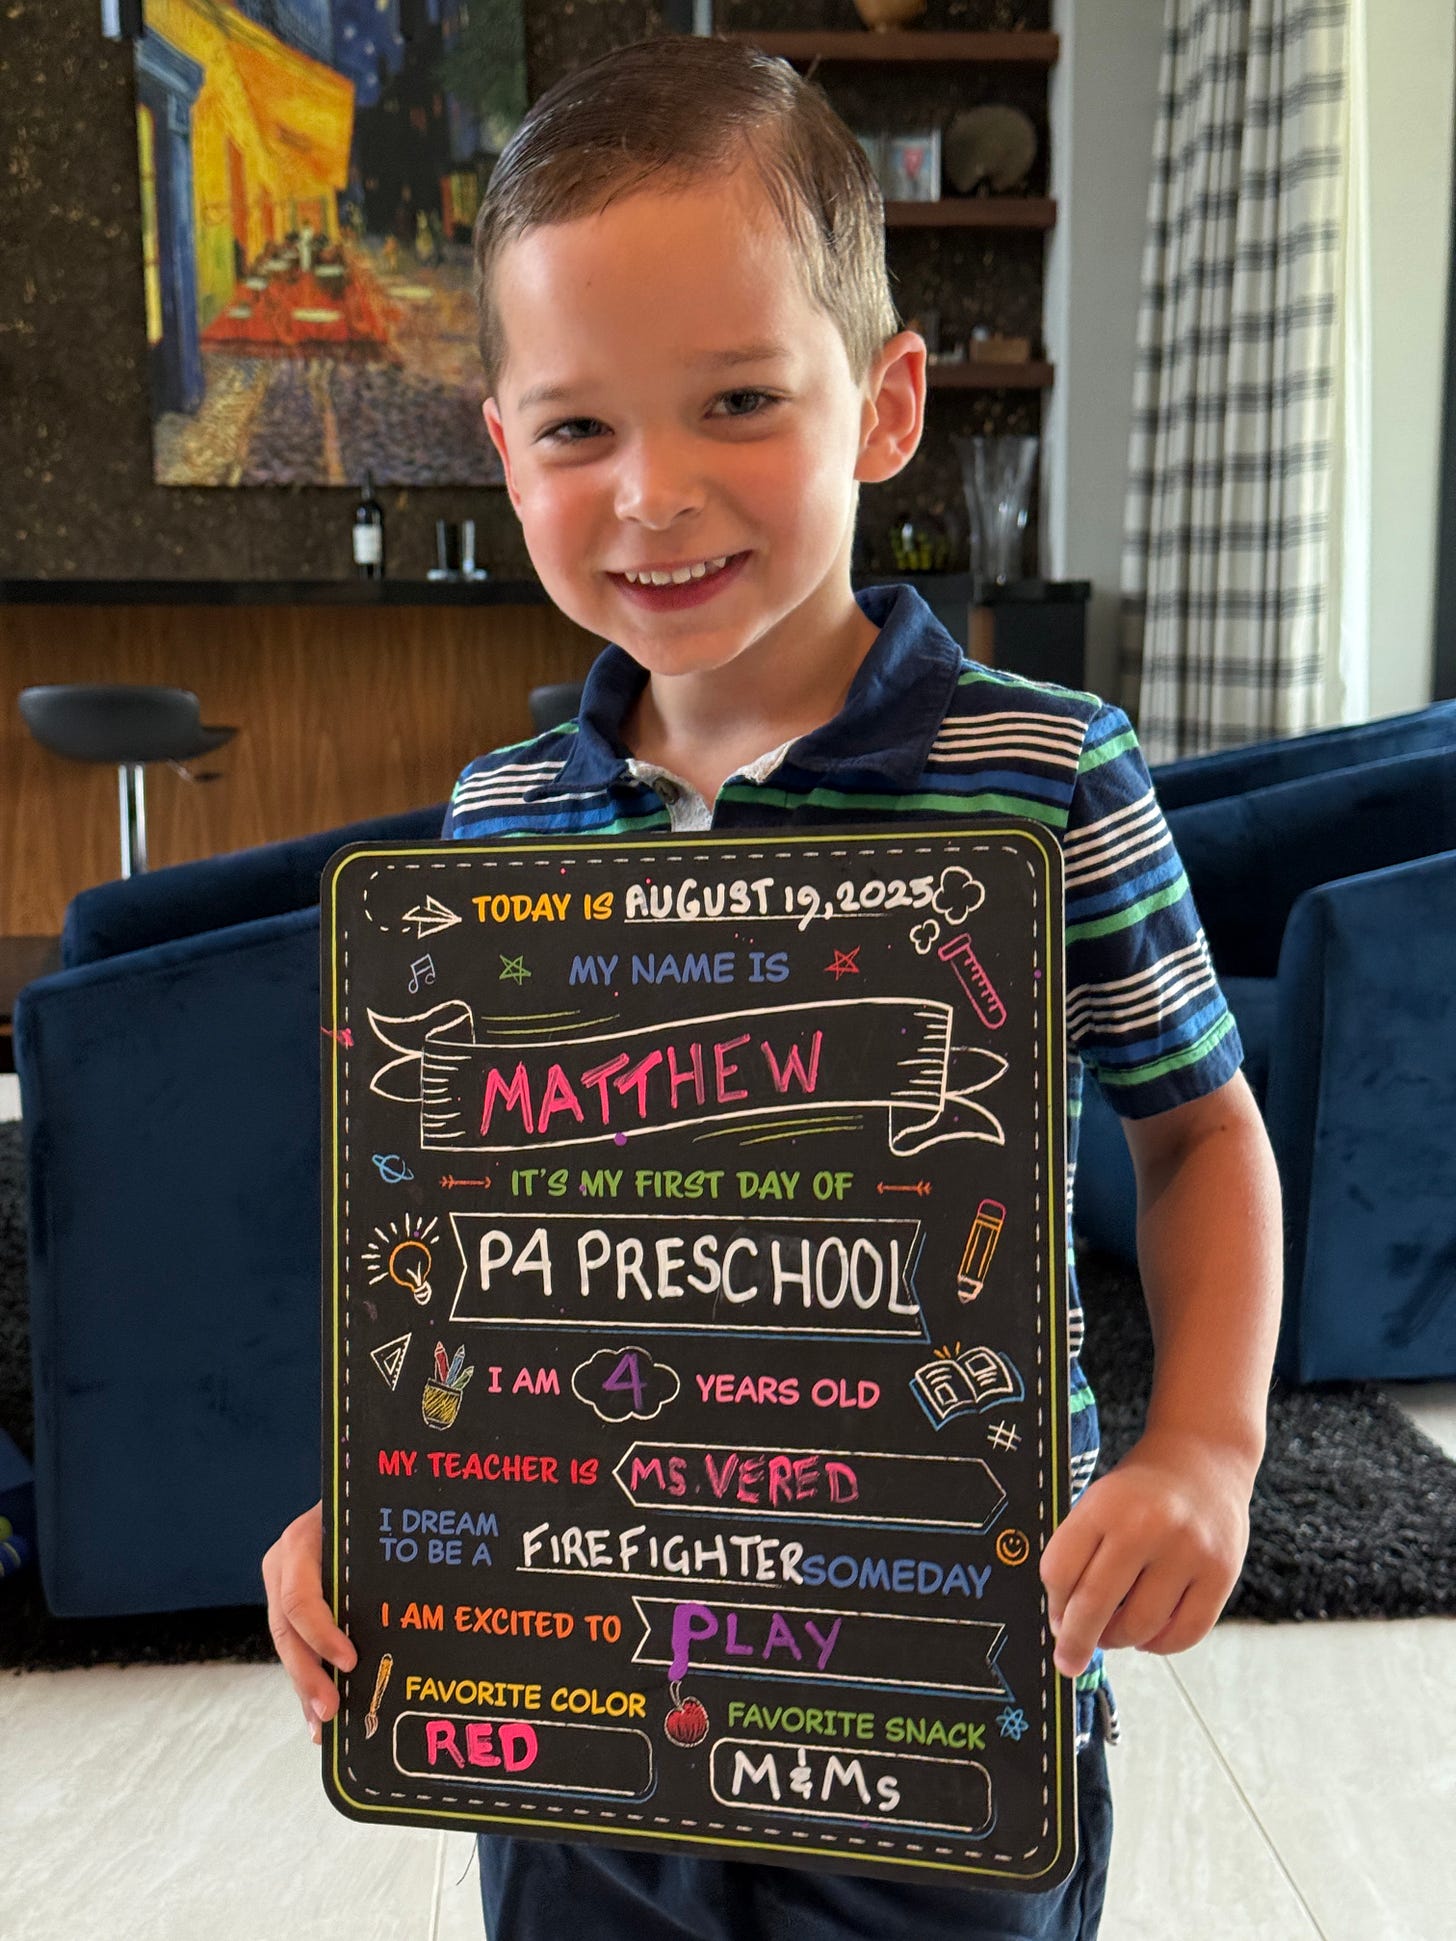 TODAY IS AUGUST 19, 2025
MY NAME IS
MATTHEW
IT'S MY FIRST DAY OF
P4 PRESCHOOL
I AM 4 YEARS OLD
MY TEACHER IS MS. VERED
I DREAM
TO BE A FIREFIGHTER SOMEDAY
I AM EXCITED TO PLAY
FAVORITE COLOR
RED
FAVORITE SNACK
M&Ms